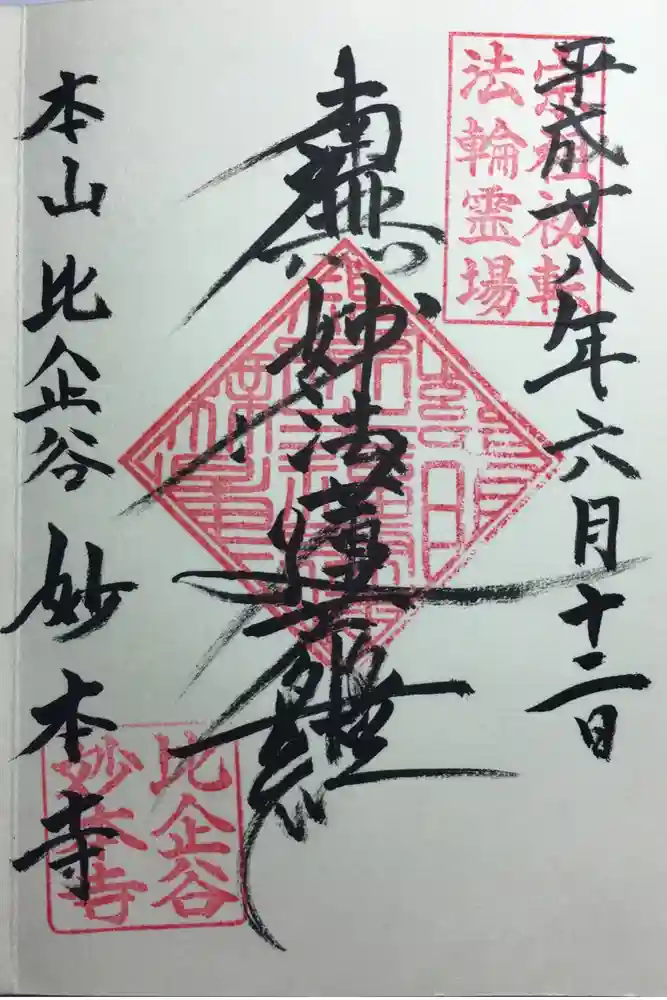 平成廿八年六月十二日
宗祖初転
法輪霊場
南無妙法蓮華経
本山 比企谷 妙本寺
比企谷
妙本寺